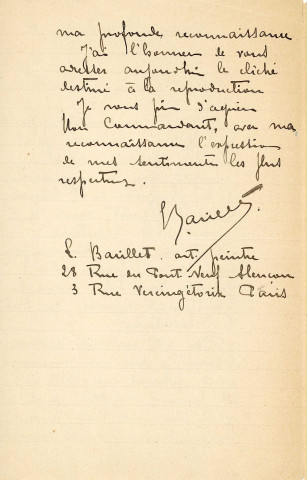 ma profonde reconnaissance
J'ai l'honneur de vous
adresser aujourdhui le cliché
destiné à la reproduction
Je vous prie d'agréer
Mon Commandant, avec ma
reconnaissance l'expression
de mes sentiments les plus
respectueux.
LBarillet.
L. Barillet. art. peintre
28 Rue du Pont Neuf Alençon
3 Rue Vercingétorix Paris